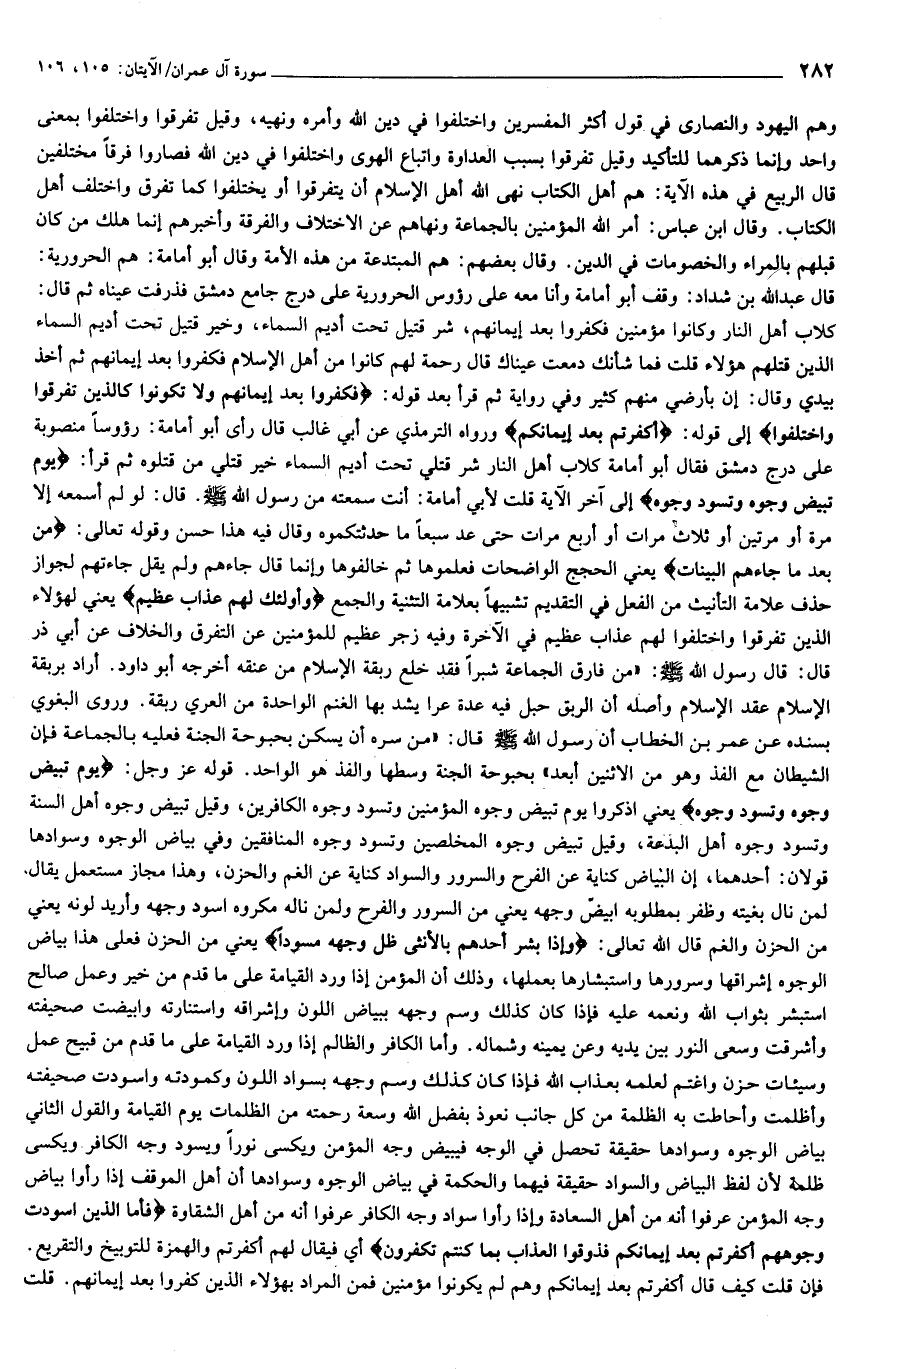 ٢٨٢ سورة آل عمران/ الآيتان: ١٠٥، ١٠٦
وهم اليهود والنصارى في قول أكثر المفسرين واختلفوا في دين الله وأمره ونهيه، وقيل تفرقوا واختلفوا بمعنى
واحد وإنما ذكرهما للتأكيد وقيل تفرقوا بسبب العداوة واتباع الهوى واختلفوا في دين الله فصاروا فرقاً مختلفين
قال الربيع في هذه الآية: هم أهل الكتاب نهى الله أهل الإسلام أن يتفرقوا أو يختلفوا كما تفرق واختلف أهل
الكتاب. وقال ابن عباس: أمر الله المؤمنين بالجماعة ونهاهم عن الاختلاف والفرقة وأخبرهم إنما هلك من كان
قبلهم بالمراء والخصومات في الدين. وقال بعضهم: هم المبتدعة من هذه الأمة وقال أبو أمامة: هم الحرورية:
قال عبدالله بن شداد: وقف أبو أمامة وأنا معه على رؤوس الحرورية على درج جامع دمشق فذرفت عيناه ثم قال:
كلاب أهل النار وكانوا مؤمنين فكفروا بعد إيمانهم، شر قتيل تحت أديم السماء، وخير قتيل تحت أديم السماء
الذين قتلهم هؤلاء قلت فما شأنك دمعت عيناك قال رحمة لهم كانوا من أهل الإسلام فكفروا بعد إيمانهم ثم أخذ
بيدي وقال: إن بأرضي منهم كثير وفي رواية ثم قرأ بعد قوله: ﴿فكفروا بعد إيمانهم ولا تكونوا كالذين تفرقوا
واختلفوا﴾ إلى قوله: ﴿أكفرتم بعد إيمانكم﴾ ورواه الترمذي عن أبي غالب قال رأى أبو أمامة: رؤوساً منصوبة
على درج دمشق فقال أبو أمامة كلاب أهل النار شر قتلي تحت أديم السماء خير قتلي من قتلوه ثم قرأ: ﴿يوم
تبيض وجوه وتسود وجوه﴾ إلى آخر الآية قلت لأبي أمامة: أنت سمعته من رسول الله ﷺ. قال: لو لم أسمعه إلا
مرة أو مرتين أو ثلاث مرات أو أربع مرات حتى عد سبعاً ما حدثتكموه وقال فيه هذا حسن وقوله تعالى: ﴿من
بعد ما جاءهم البينات﴾ يعني الحجج الواضحات فعلموها ثم خالفوها وإنما قال جاءهم ولم يقل جاءتهم لجواز
حذف علامة التأنيث من الفعل في التقديم تشبيهاً بعلامة التثنية والجمع ﴿وأولئك لهم عذاب عظيم﴾ يعني لهؤلاء
الذين تفرقوا واختلفوا لهم عذاب عظيم في الآخرة وفيه زجر عظيم للمؤمنين عن التفرق والخلاف عن أبي ذر
قال: قال رسول الله ﷺ: «من فارق الجماعة شبراً فقد خلع ربقة الإسلام من عنقه أخرجه أبو داود. أراد بربقة
الإسلام عقد الإسلام وأصله أن الربق حبل فيه عدة عرا يشد بها الغنم الواحدة من العري ربقة. وروى البغوي
بسنده عن عمر بن الخطاب أن رسول الله ﷺ قال: «من سره أن يسكن بحبوحة الجنة فعليه بالجماعة فإن
الشيطان مع الفذ وهو من الاثنين أبعد» بحبوحة الجنة وسطها والفذ هو الواحد. قوله عز وجل: ﴿يوم تبيض
وجوه وتسود وجوه﴾ يعني اذكروا يوم تبيض وجوه المؤمنين وتسود وجوه الكافرين، وقيل تبيض وجوه أهل السنة
وتسود وجوه أهل البدعة، وقيل تبيض وجوه المخلصين وتسود وجوه المنافقين وفي بياض الوجوه وسوادها
قولان: أحدهما، إن البياض كناية عن الفرح والسرور والسواد كناية عن الغم والحزن، وهذا مجاز مستعمل يقال.
لمن نال بغيته وظفر بمطلوبه ابيضّ وجهه يعني من السرور والفرح ولمن ناله مكروه اسود وجهه وأربد لونه يعني
من الحزن والغم قال الله تعالى: ﴿وإذا بشر أحدهم بالأنثى ظل وجهه مسوداً﴾ يعني من الحزن فعلى هذا بياض
الوجوه إشراقها وسرورها واستبشارها بعملها، وذلك أن المؤمن إذا ورد القيامة على ما قدم من خير وعمل صالح
استبشر بثواب الله ونعمه عليه فإذا كان كذلك وسم وجهه ببياض اللون وإشراقه واستنارته وابيضت صحيفته
وأشرقت وسعى النور بين يديه وعن يمينه وشماله. وأما الكافر والظالم إذا ورد القيامة على ما قدم من قبيح عمل
وسيئات حزن واغتم لعلمه بعذاب الله فإذا كان كذلك وسم وجهه بسواد اللون وكمودته واسودت صحيفته
وأظلمت وأحاطت به الظلمة من كل جانب نعوذ بفضل الله وسعة رحمته من الظلمات يوم القيامة والقول الثاني
بياض الوجوه وسوادها حقيقة تحصل في الوجه فيبيض وجه المؤمن ويكسى نوراً ويسود وجه الكافر ويكسى
ظلمة لأن لفظ البياض والسواد حقيقة فيهما والحكمة في بياض الوجوه وسوادها أن أهل الموقف إذا رأوا بياض
وجه المؤمن عرفوا أنه من أهل السعادة وإذا رأوا سواد وجه الكافر عرفوا أنه من أهل الشقاوة ﴿فأما الذين اسودت
وجوههم أكفرتم بعد إيمانكم فذوقوا العذاب بما كنتم تكفرون﴾ أي فيقال لهم أكفرتم والهمزة للتوبيخ والتقريع.
فإن قلت كيف قال أكفرتم بعد إيمانكم وهم لم يكونوا مؤمنين فمن المراد بهؤلاء الذين كفروا بعد إيمانهم. قلت